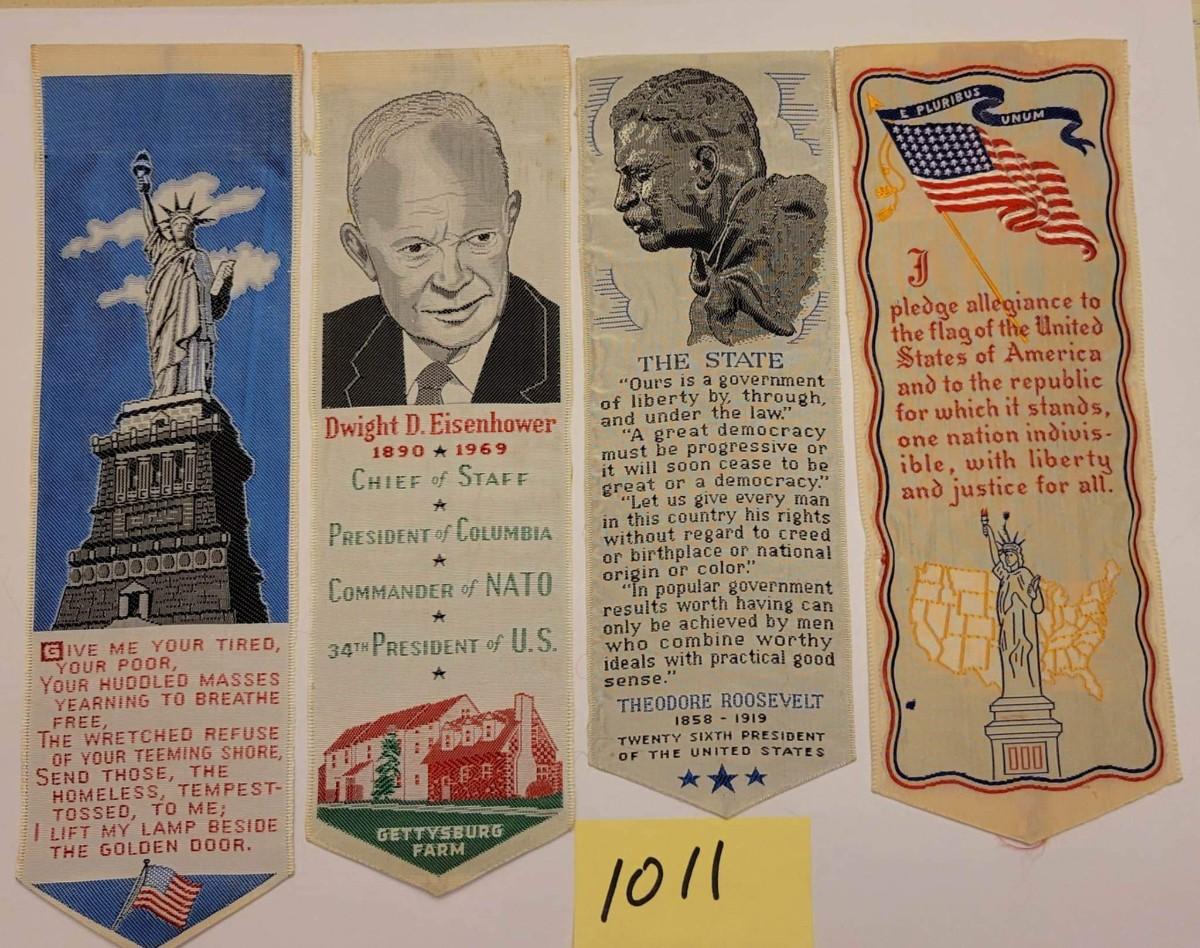 GIVE ME YOUR TIRED,
YOUR POOR,
YOUR HUDDLED MASSES
YEARNING TO BREATHE
FREE,
THE WRETCHED REFUSE
OF YOUR TEEMING SHORE,
SEND THOSE, THE
HOMELESS, TEMPEST-
TOSSED, TO ME;
I LIFT MY LAMP BESIDE
THE GOLDEN DOOR.
Dwight D. Eisenhower
1890 ★ 1969
CHIEF of STAFF
★
PRESIDENT of COLUMBIA
★
COMMANDER of NATO
★
34TH PRESIDENT of U.S.
★
GETTYSBURG
FARM
THE STATE
"Ours is a government
of liberty by, through,
and under the law."
"A great democracy
must be progressive or
it will soon cease to be
great or a democracy."
"Let us give every man
in this country his rights
without regard to creed
or birthplace or national
origin or color."
"In popular government
results worth having can
only be achieved by men
who combine worthy
ideals with practical good
sense."
THEODORE ROOSEVELT
1858 - 1919
TWENTY SIXTH PRESIDENT
OF THE UNITED STATES
E PLURIBUS
UNUM
I
pledge allegiance to
the flag of the United
States of America
and to the republic
for which it stands,
one nation indivis-
ible, with liberty
and justice for all.
1011